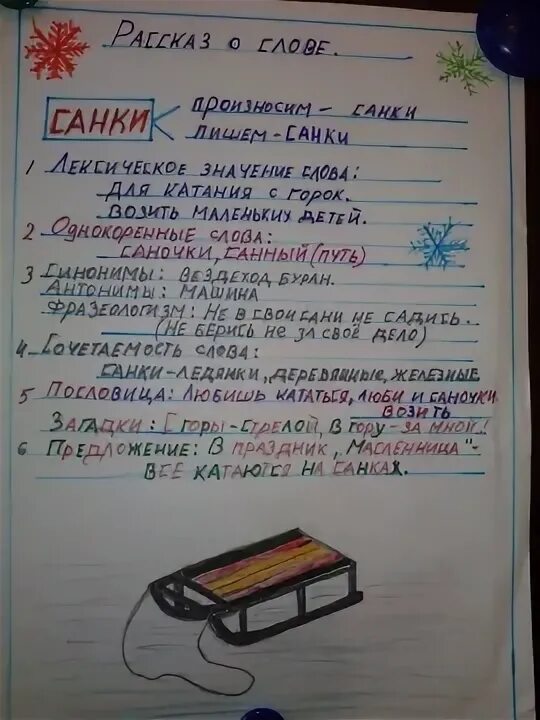 Рассказ о слове.
САНКИ
произносим - санки
пишем - санки
1 Лексическое значение слова:
для катания с горок.
возить маленьких детей.
2 Однокоренные слова:
саночки, санный (путь)
3 Синонимы: вездеход, буран.
Антонимы: машина
Фразеологизм: Не в свои сани не садись.
(не берись не за своё дело)
4 Сочетаемость слова:
санки-ледянки, деревянные, железные
5 Пословица: Любишь кататься, люби и саночки
возить
Загадки: С горы-стрелой, в гору-за мной!
6 Предложение: В праздник „Масленница"-
все катаются на санках.